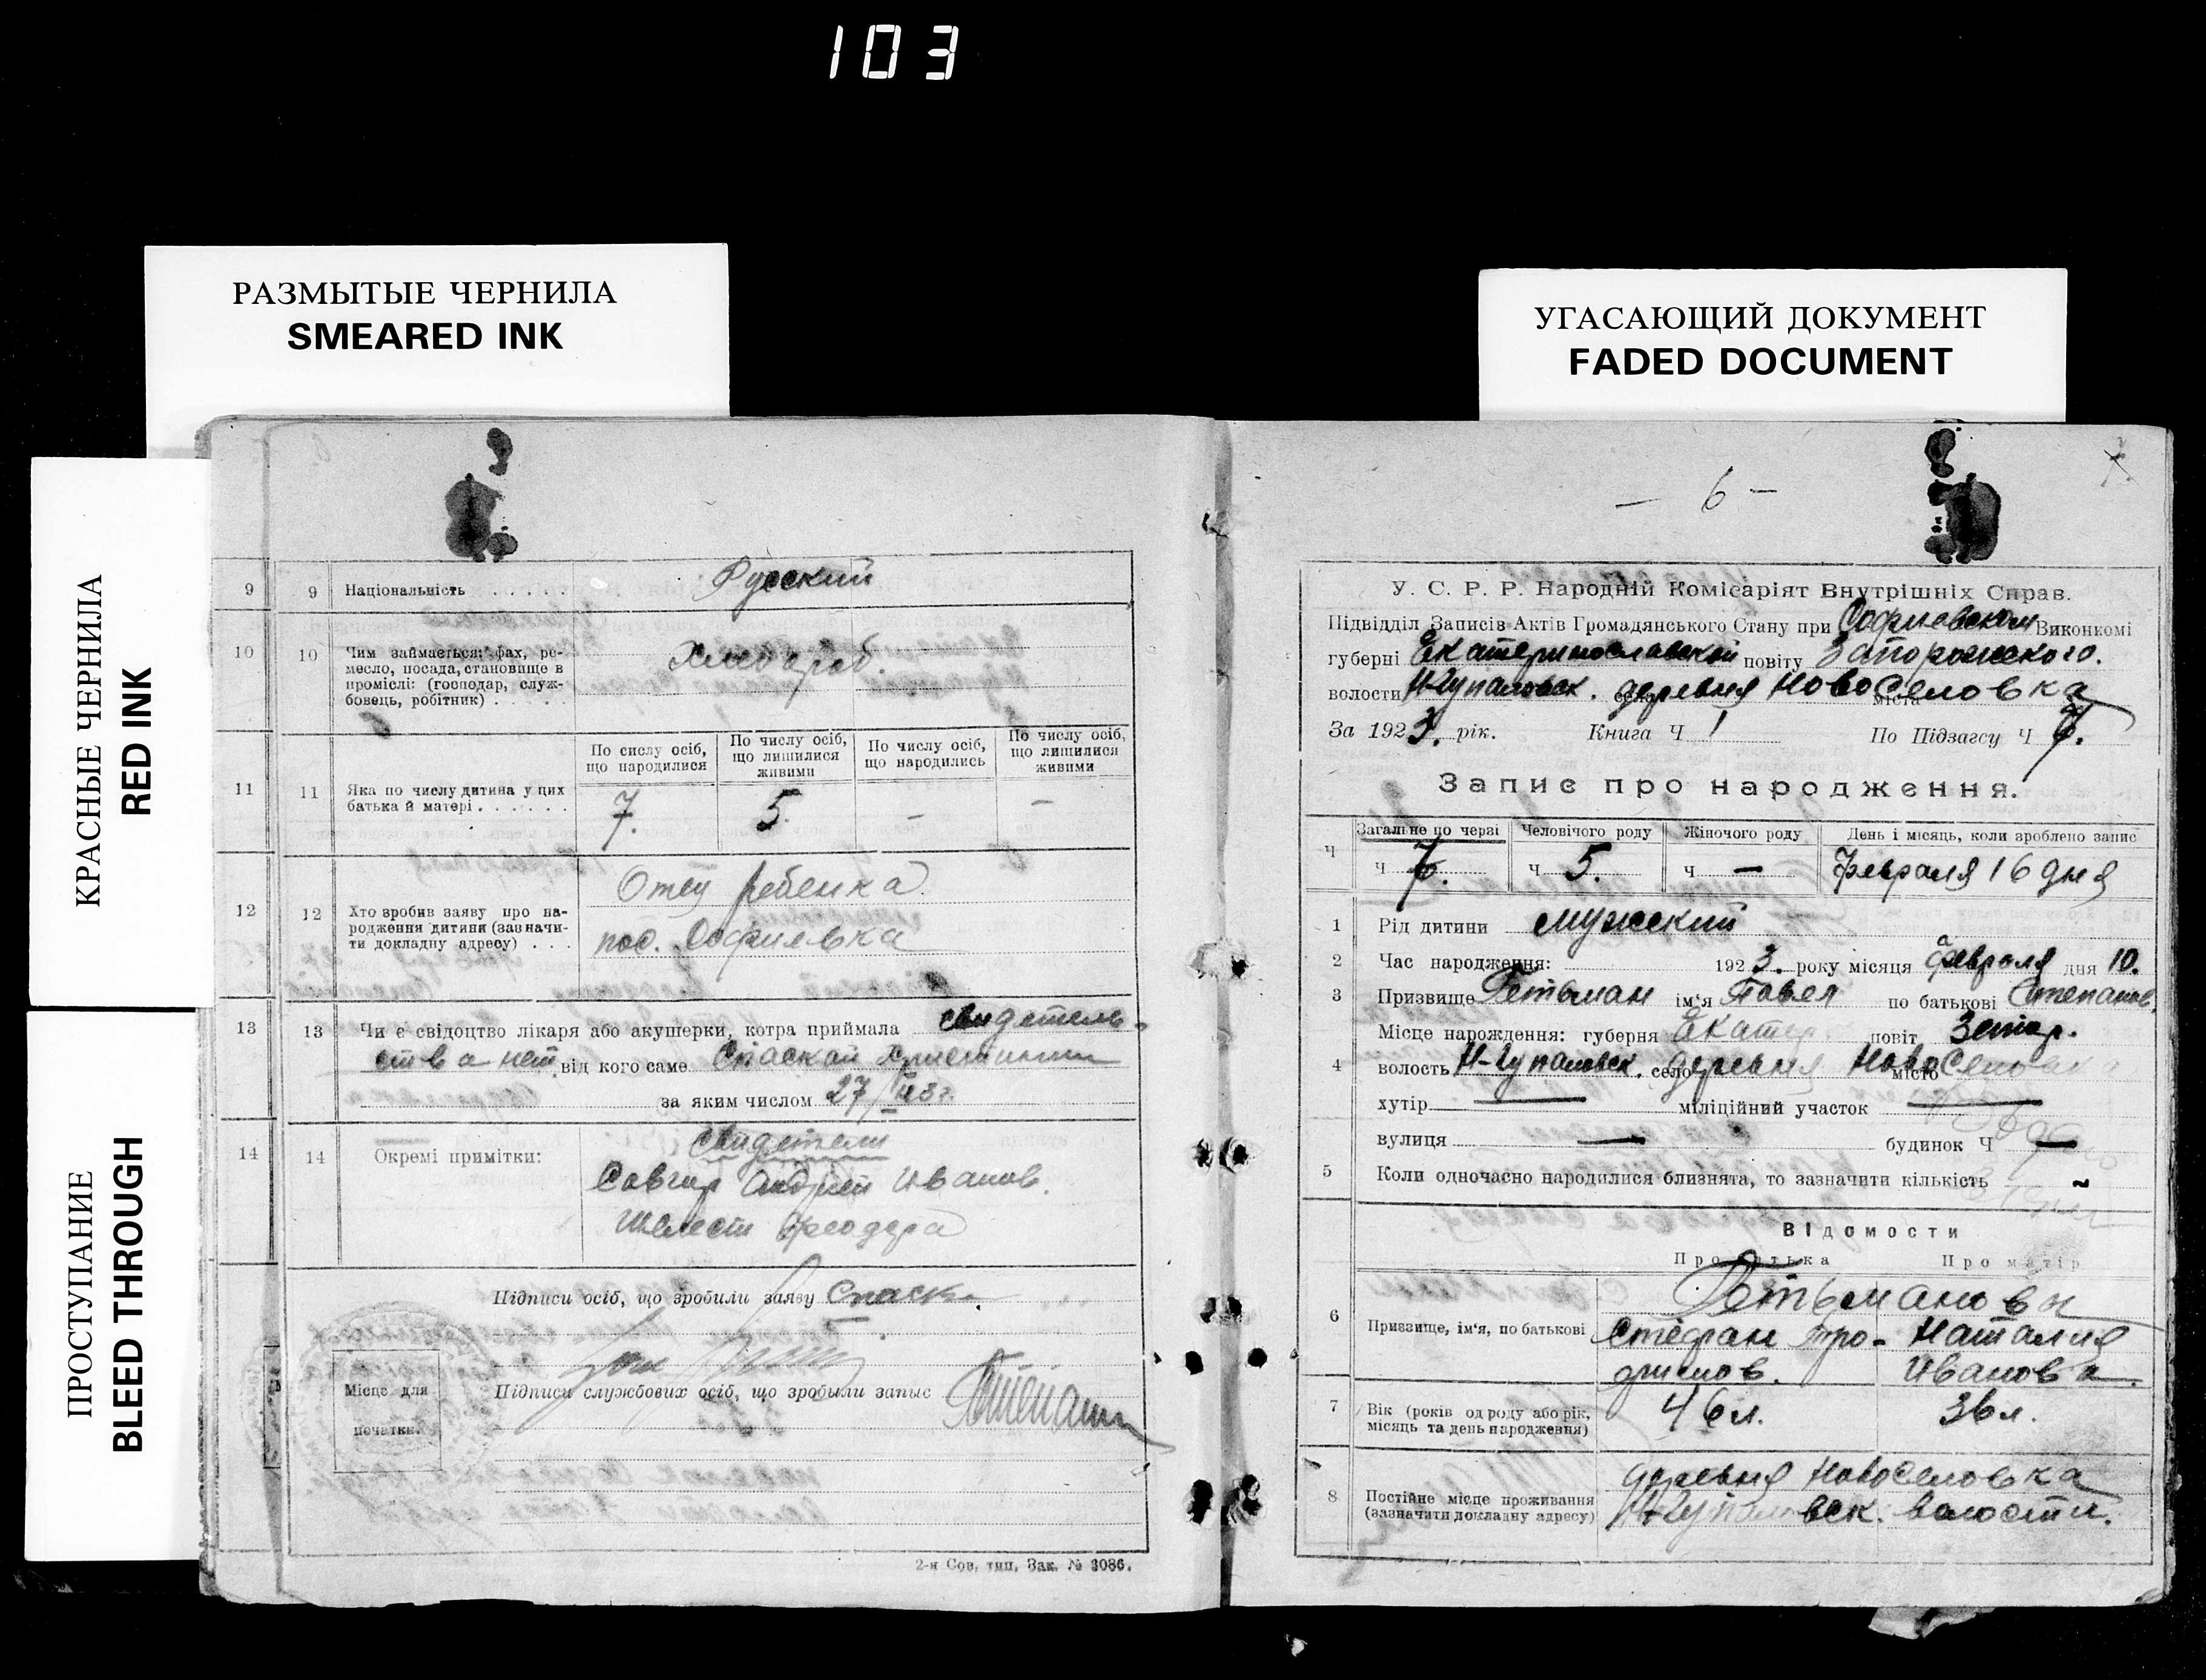 103
РАЗМЫТЫЕ ЧЕРНИЛА
SMEARED INK
УГАСАЮЩИЙ ДОКУМЕНТ
FADED DOCUMENT
КРАСНЫЕ ЧЕРНИЛА
RED INK
ПРОСТУПАНИЕ
BLEED THROUGH
9 9 Національність . . . . . . Русский
10 10 Чим займається: фах, ре-
месло, посада, становище в
промислі: (господар, служ-
бовець, робітник) . . . . . .
Хлебороб.
11 11 Яка по числу дитина у цих
батька й матері . . . . . . .
По сислу осіб,
що народилися
По числу осіб,
що лишилися
живими
По числу осіб,
що народились
По числу осіб,
що лишилися
живими
7. 5. – –
12 12 Хто зробив заяву про на-
родження дитини (зазначи-
ти докладну адресу) . . .
Отец ребенка.
пос. Софиевка
13 13 Чи є свідоцтво лікаря або акушерки, котра приймала свидетель-
ства нет від кого саме Спаской
за яким числом 27/II 23 г.
14 14 Окремі примітки:
Свидетели
Савгир Андрей Иванов.
Шелест Феодора
Підписи осіб, що зробили заяву Спаск
Підписи службових осіб, що зробыли запис
Місце для
печатки.
2-я Сов. тип. Зак. № 3086.
– 6 –
7.
У. С. Р. Р. Народній Комісаріят Внутрішніх Справ.
Підвідділ Записів Актів Громадянського Стану при Софиевском Виконкомі
губерні Екатеринославской повіту Запорожского.
волости Н-Гупаловск. села деревня Новоселовка
міста
За 1923. рік. Книга Ч 1 По Підзагсу Ч 7.
Запис про народження.
Ч Загальне по черзі Человічого роду Жіночого роду День і місяць, коли зроблено запис
Ч 7. Ч 5. Ч — Февраля 16 дня
1 Рід дитини мужский
2 Час народження: 1923. року місяця февраля дня 10.
3 Призвище Гетьман ім'я Павел по батькові Степанов.
4 Місце нарождення: губерня Екатер. повіт Запор.
волость Н-Гупаловск. село деревня місто Новоселовка
хутір — міліційний участок —
вулиця — будинок Ч —
5 Коли одночасно народилися близнята, то зазначити кількість -
Відомости
Про батька Про матір
6 Призвище, ім'я, по батькові
Гетьмановы
Стефан Тро- Наталия
фимов. Ивановa.
7 Вік (років од роду або рік,
місяць та день народження)
46 л. 36 л.
8 Постійне місце проживання
(зазначити докладну адресу)
деревня Новоселовка
Н-Гупаловск. волости.